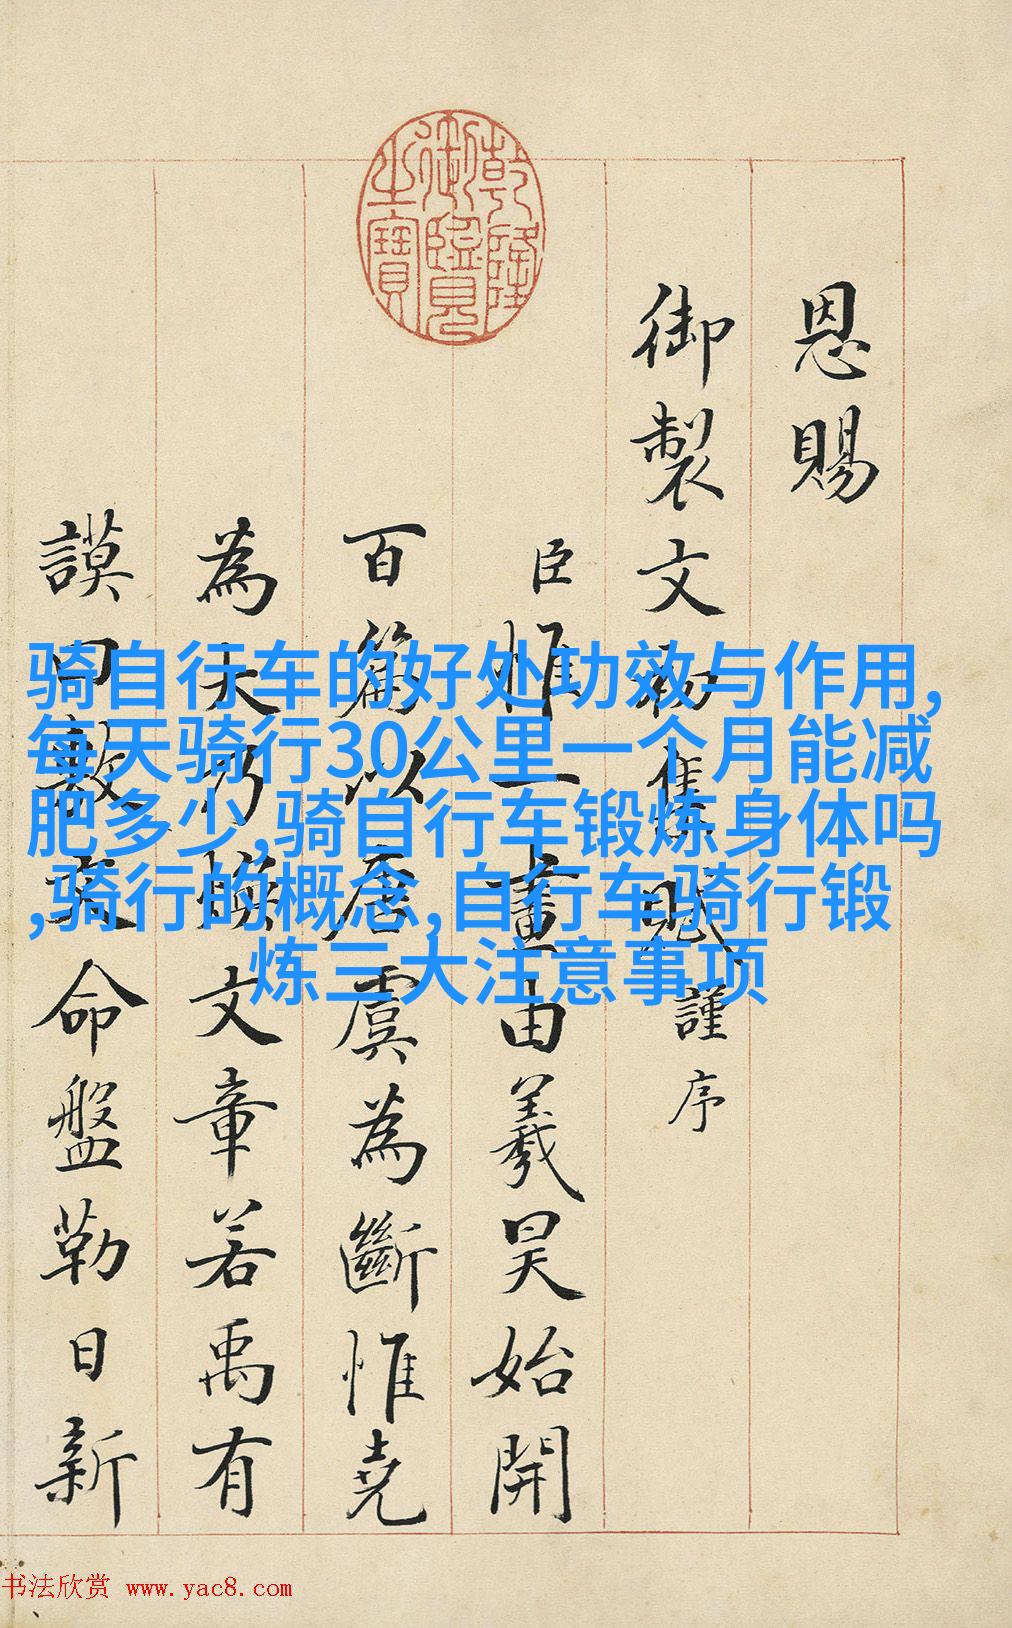 乾隆御覽之寶
恩賜
御製文初集賦謹序
臣惟一畫由羲昊始開
百篇以唐虞為斷惟堯
為大乃煥文章若禹有
謨曰敷命盤勒日新
骑自行车的好处功效与作用,
每天骑行30公里一个月能减
肥多少,骑自行车锻炼身体吗
,骑行的概念,自行车骑行锻
炼三大注意事项
书法欣赏 www.yac8.com